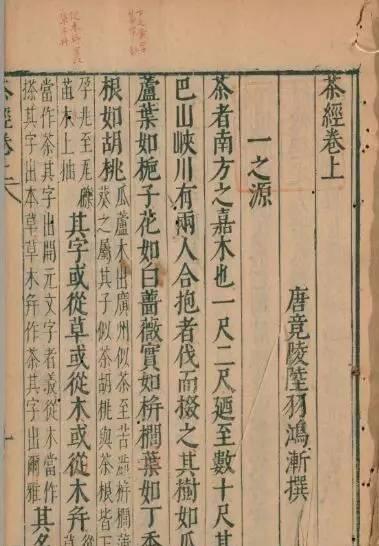 茶經卷上
唐竟陵陸羽鴻漸撰
一之源
茶者南方之嘉木也一尺二尺廼至數十尺其
巴山峽川有兩人合抱者伐而掇之其樹如瓜
蘆葉如梔子花如白薔薇實如栟櫚葉如丁香
根如胡桃
瓜蘆木出廣州似茶至苦澁栟櫚蒲
葵之屬其子似茶胡桃與茶根皆下
孕兆至瓦礫
苗木上抽
其字或從草或從木或從木弁
當作茶其字出開元文字者義從木當作
搽其字出本草草木弁作茶其字出爾雅
其名
茶經卷上
一